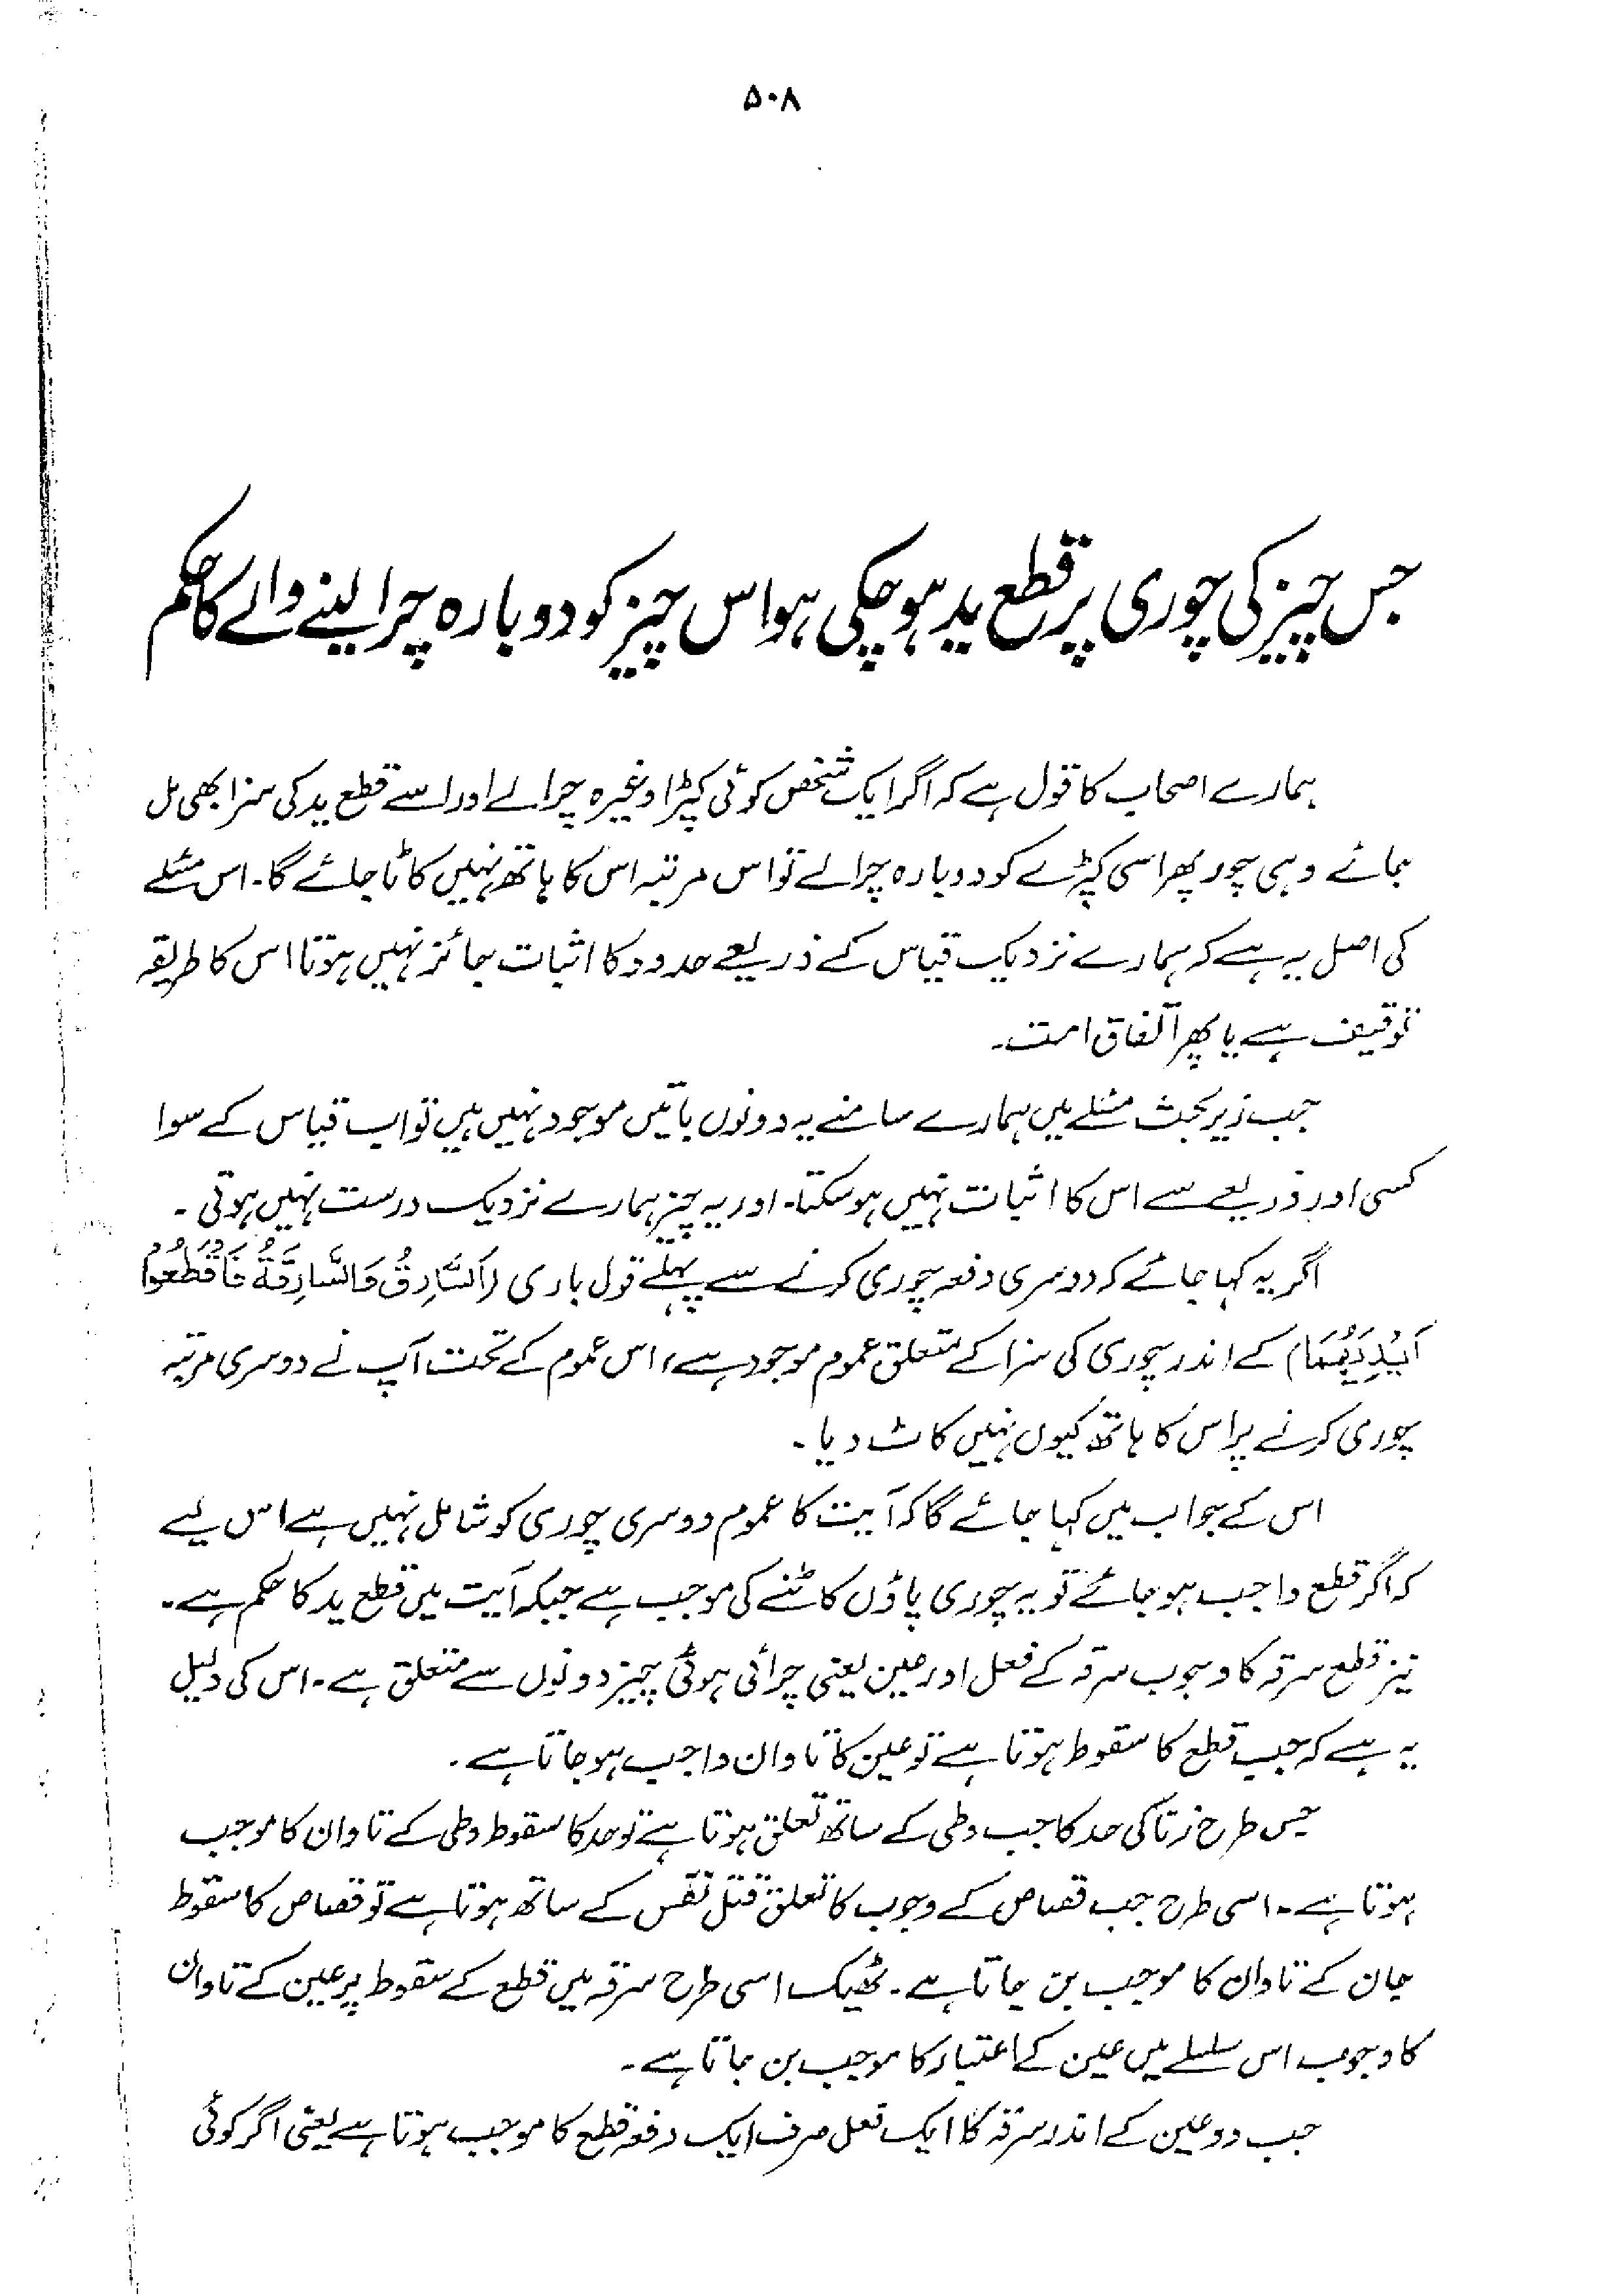 ۵۰۸
جس چیز کی چوری پر قطع ید ہو چکی ہو اس چیز کو دوبارہ چرا لینے والے کا حکم
ہمارے اصحاب کا قول ہے کہ اگر ایک شخص کوئی کپڑا وغیرہ چرا لے اور اسے قطع ید کی سزا بھی مل
جائے وہی چور پھر اسی کپڑے کو دوبارہ چرا لے تو اس مرتبہ اس کا ہاتھ نہیں کاٹا جائے گا۔ اس مسئلے
کی اصل یہ ہے کہ ہمارے نزدیک قیاس کے ذریعے حدود کا اثبات جائز نہیں ہوتا اس کا طریقہ
توقیف ہے یا پھر اتفاق امت۔
جب زیر بحث مسئلے میں ہمارے سامنے یہ دونوں باتیں موجود نہیں ہیں تو اب قیاس کے سوا
کسی اور ذریعے سے اس کا اثبات نہیں ہو سکتا۔ اور یہ چیز ہمارے نزدیک درست نہیں ہوتی۔
اگر یہ کہا جائے کہ دوسری دفعہ چوری کرنے سے پہلے قول باری (اَلسَّارِقُ وَالسَّارِقَةُ فَاقْطَعُوْا
اَیْدِیَهُمَا) کے اندر چوری کی سزا کے متعلق عموم موجود ہے، اس عموم کے تحت آپ نے دوسری مرتبہ
چوری کرنے پر اس کا ہاتھ کیوں نہیں کاٹ دیا۔
اس کے جواب میں کہا جائے گا کہ آیت کا عموم دوسری چوری کو شامل نہیں ہے اس لیے
کہ اگر قطع واجب ہو جائے تو یہ چوری پاؤں کاٹنے کی موجب ہے جبکہ آیت میں قطع ید کا حکم ہے۔
نیز قطع سرقہ کا وجوب سرقہ کے فعل اور عین یعنی چرائی ہوئی چیز دونوں سے متعلق ہے۔ اس کی دلیل
یہ ہے کہ جب قطع کا سقوط ہوتا ہے تو عین کا تاوان واجب ہو جاتا ہے۔
جس طرح زنا کی حد کا جب وطی کے ساتھ تعلق ہوتا ہے تو حد کا سقوط وطی کے تاوان کا موجب
ہوتا ہے۔ اسی طرح جب قصاص کے وجوب کا تعلق قتل نفس کے ساتھ ہوتا ہے تو قصاص کا سقوط
جان کے تاوان کا موجب بن جاتا ہے۔ ٹھیک اسی طرح سرقہ میں قطع کے سقوط پر عین کے تاوان
کا وجوب اس سلسلے میں عین کے اعتبار کا موجب بن جاتا ہے۔
جب دو عین کے اندر سرقہ کا ایک فعل صرف ایک دفعہ قطع کا موجب ہوتا ہے یعنی اگر کوئی